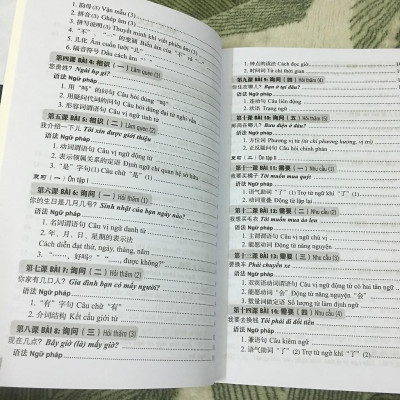 2. 韵母(3) Vận mẫu (3)
3. 拼音(3) Ghép âm (3)
4. 拼写说明(3) Thuyết minh khi viết phiên âm (3)
6. 儿化 Âm cuốn lưỡi "儿"
7. 隔音符号 Dấu cách âm
第四课 BÀI 4: 相识（一）Làm quen (1)
您贵姓? Ngài họ gì?
语法 Ngữ pháp
1. 用"吗"的问句 Câu hỏi dùng "吗"
2. 用疑问代词的问句 Câu hỏi dùng đại từ nghi vấn
3. 形容词谓语句 Câu vị ngữ tính từ
第五课 BÀI 5: 相识（二）Làm quen (2)
我介绍一下儿 Tôi xin được giới thiệu
语法 Ngữ pháp
1. 动词谓语句 Câu vị ngữ động từ
2. 表示领属关系的定语 Định ngữ chỉ quan hệ sở hữu
3. "是"字句(1) Câu chữ "是" (1)
复习（一）Ôn tập I
第六课 BÀI 6: 询问（一）Hỏi thăm (1)
你的生日是几月几号? Sinh nhật của bạn ngày nào?
语法 Ngữ pháp
1. 名词谓语句 Câu vị ngữ danh từ
2. 年、月、日、星期的表示法
Cách diễn đạt thứ, ngày, tháng, năm
3. "……, 好吗?" "……, được không?"
第七课 BÀI 7: 询问（二）Hỏi thăm (2)
你家有几口人? Gia đình bạn có mấy người?
语法 Ngữ pháp
1. "有"字句 Câu chữ "有"
2. 介词结构 Kết cấu giới từ
第八课 BÀI 8: 询问（三）Hỏi thăm (3)
现在几点? Bây giờ (là) mấy giờ?
语法 Ngữ pháp
1. 钟点的读法 Cách đọc giờ
2. 时间词 Từ chỉ thời gian
第九课 BÀI 9: 询问（四）Hỏi thăm (4)
你住在哪儿? Bạn ở tại đâu?
语法 Ngữ pháp
1. 连动句 Câu liên động
2. 状语 Trạng ngữ
第十课 BÀI 10: 询问（五）Hỏi thăm (5)
邮局在哪儿? Bưu điện ở đâu?
语法 Ngữ pháp
1. 方位词 Phương vị từ
2. 正反疑问句 Câu hỏi chính phản
复习（二）Ôn tập II
第十一课 BÀI 11: 需要（一）Nhu cầu (1)
我要买橘子 Tôi muốn mua quýt
语法 Ngữ pháp
1. 语气助词"了"(1) Trợ từ ngữ khí "了" (1)
2. 动词重叠 Động từ lặp lại
第十二课 BÀI 12: 需要（二）Nhu cầu (2)
我想买毛衣 Tôi muốn mua áo len
语法 Ngữ pháp
1. 主谓谓语句 Câu vị ngữ chủ vị
2. 能愿动词 Động từ năng nguyện
第十三课 BÀI 13: 需要（三）Nhu cầu (3)
要换车 Phải chuyển xe
语法 Ngữ pháp
1. 双宾语动词谓语句 Câu vị ngữ động từ có hai tân ngữ
2. 能愿动词"会" Động từ năng nguyện "会"
3. 数量词做定语 Số lượng từ làm định ngữ
第十四课 BÀI 14: 需要（四）Nhu cầu (4)
我要去换钱 Tôi phải đi đổi tiền
语法 Ngữ pháp
1. 兼语句 Câu kiêm ngữ
2. 语气助词"了"(2) Trợ từ ngữ khí "了" (2)